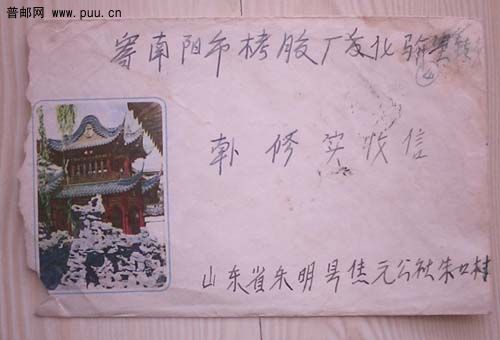 普邮网
www.puu.cn
寄南阳市栲胶厂友化验室转
韩修实收信
山东省东明县焦元公社朱口村